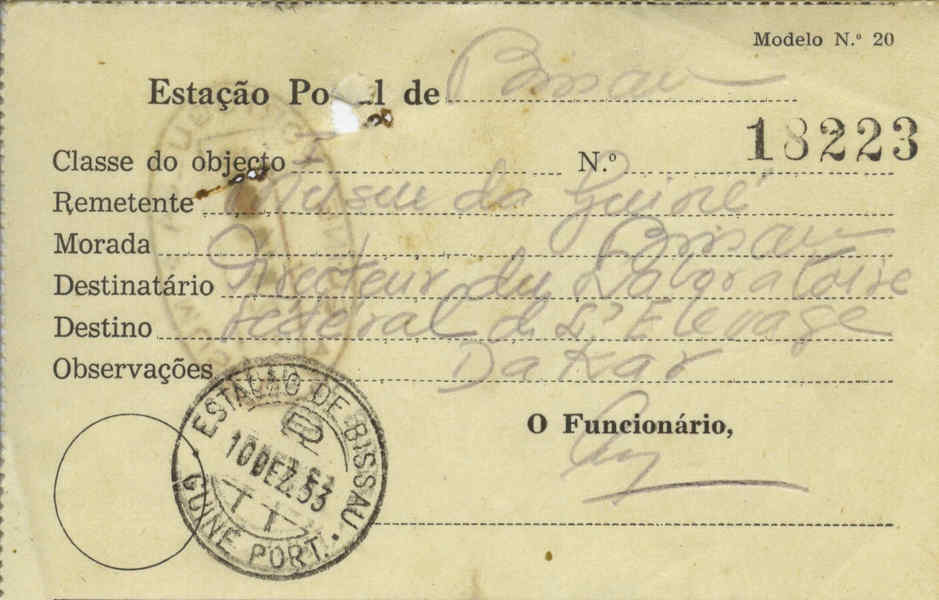 Modelo N.º 20
Estação Postal de Bissau
Classe do objecto N.º 18223
Remetente Museu da Guiné
Morada Bissau
Destinatário Directeur du Laboratoire
Destino Féderal de L'Elevage
Observações Dakar
O Funcionário,
ESTAÇÃO DE BISSAU
10 DEZ. 53
GUINÉ PORT.